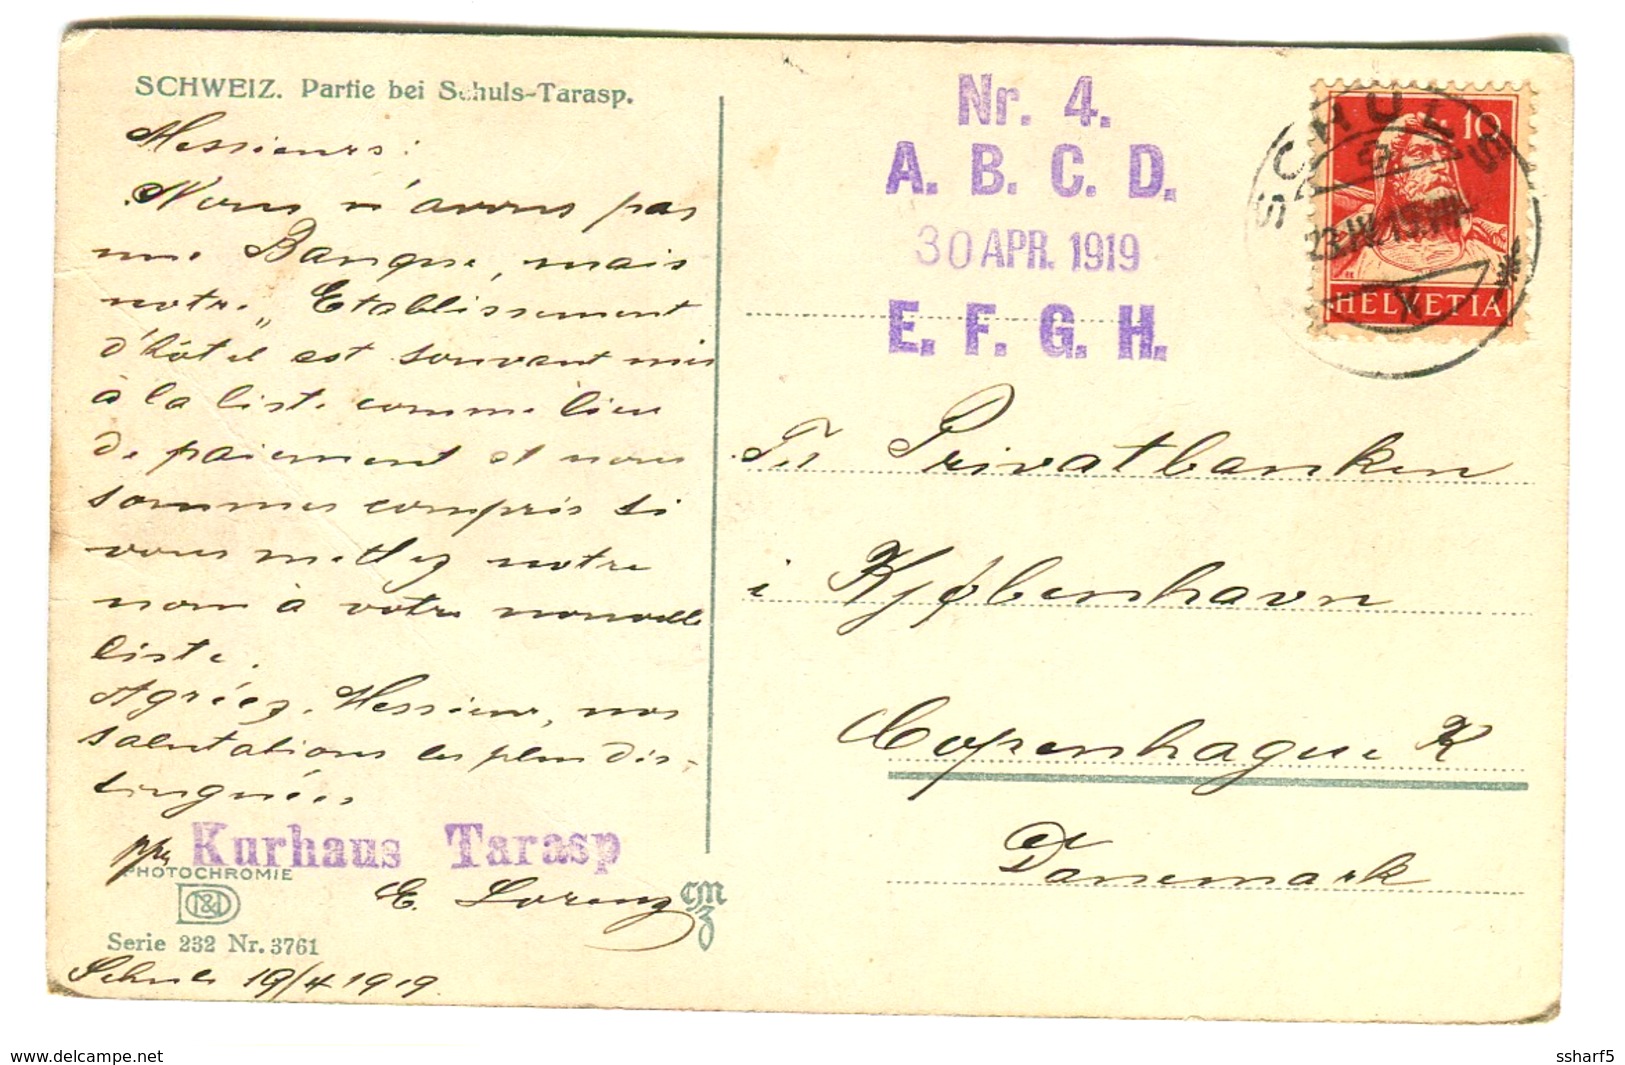 SCHWEIZ. Partie bei Schuls-Tarasp.
Messieurs:
Nous n'avons pas
une Banque, mais
notre „Etablissement
d'hôtel est souvent mis
à la liste comme lieu
de paiement et nous
sommes compris si
vous mettez notre
nom à votre nouvelle
liste.
Agréez, Messieurs, nos
salutations les plus dis-
tinguées
ppa Kurhaus Tarasp
E. Lorenz
PHOTOCHROMIE
Serie 232 Nr. 3761
Schuls 19/4 1919.
Nr. 4.
A. B. C. D.
30 APR. 1919
E. F. G. H.
SCHULS
23.IV.19.VII-
10
HELVETIA
Til Privatbanken
i Kjøbenhavn
Copenhague K
Danemark
www.delcampe.net
ssharf5